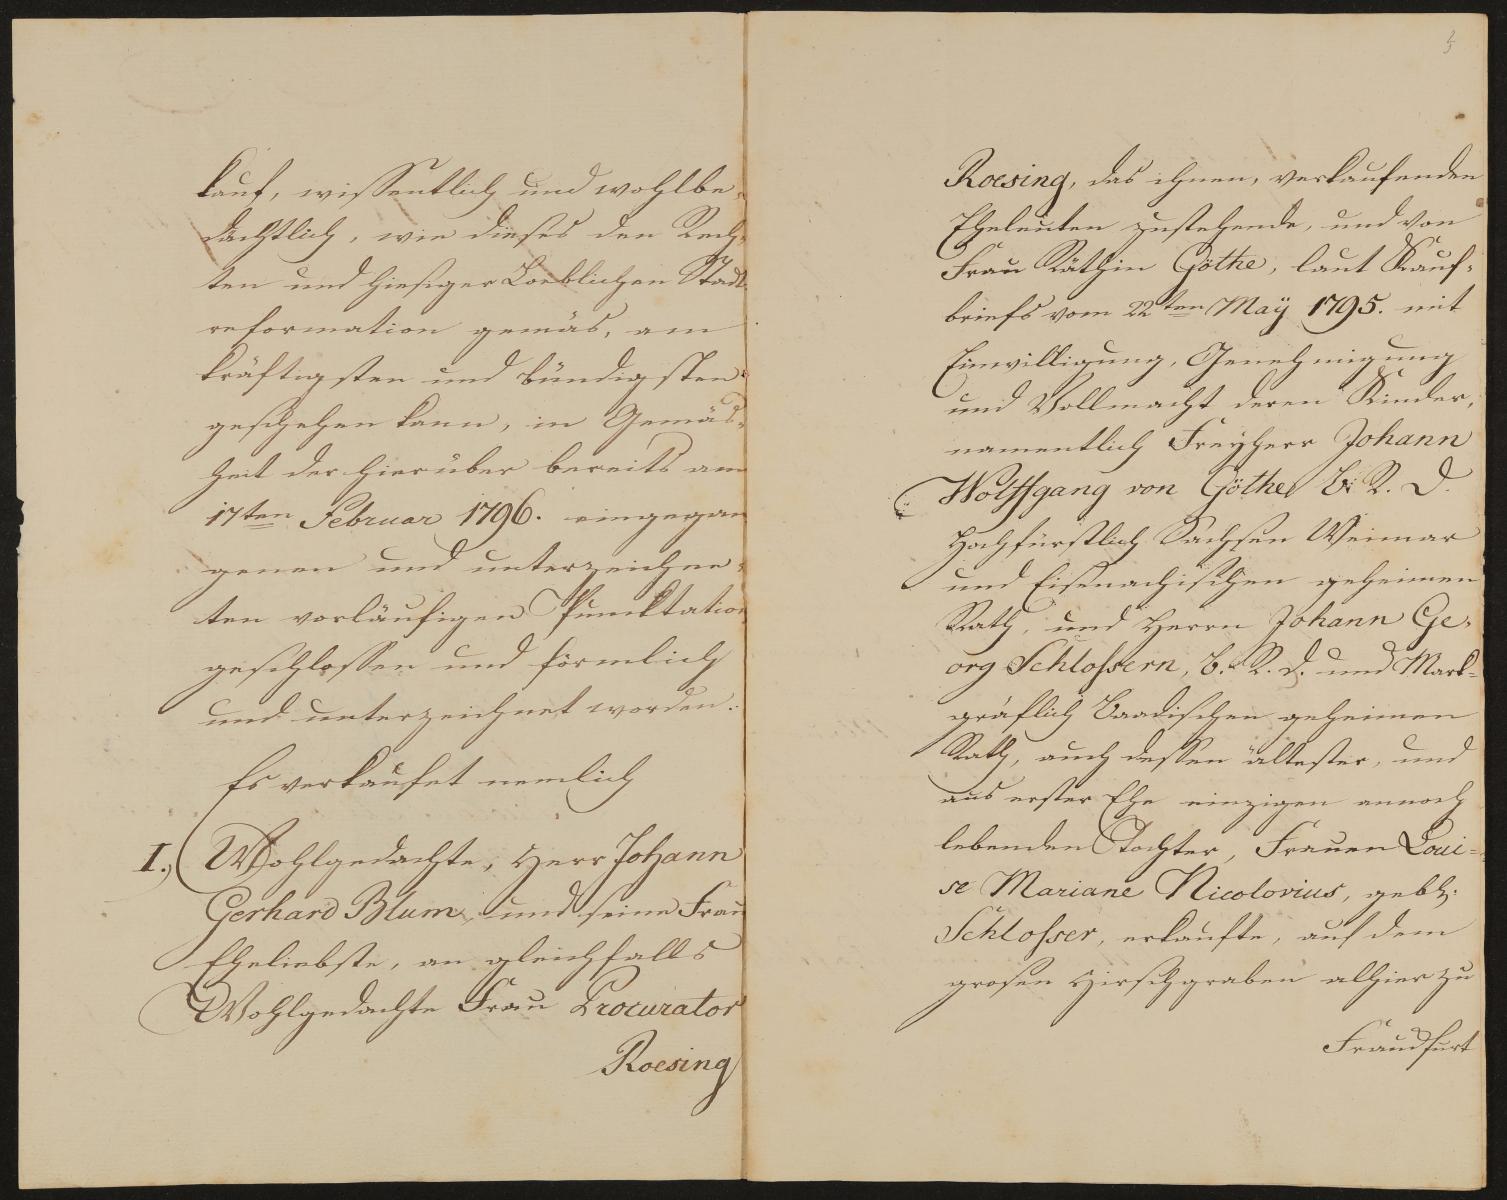 kauf, wissentlich und wohlbe-
dächtlich, wie dieses den Rech-
ten und hiesiger Loeblichen Stadt
reformation gemäs, am
kräftigsten und bündigsten
geschehen kann, in Gemäs-
heit der hierüber bereits am
17ten Februar 1796. eingegan
genen und unterzeichne-
ten vorläufigen Punktation
geschlossen und förmlich
und unterzeichnet worden.
Es verkaufet nemlich
I.) Wohlgedachte, Herr Johann
Gerhard Blum, und seine Frau
Eheliebste, an gleichfalls
Wohlgedachte Frau Procurator
Roesing
5
Roesing, das ihnen, verkaufenden
Eheleuten zustehende, und von
Frau Räthin Göthe, laut Kauf-
briefs vom 22ten Maÿ 1795. mit
Einwilligung, Genehmigung
und Vollmacht deren Kinder,
namentlich Freyherr Johann
Wolffgang von Göthe b. R. D.
Hochfürstlich Sachsen Weimar
und Eisenachischen geheimen
Rath, und Herrn Johann Ge-
org Schlossern, b. R. D. und Mark-
gräflich Baadischen geheimen
Rath, auch dessen ältester, und
aus erster Ehe einzigen annoch
lebenden Tochter, Frauen Loui-
se Mariane Nicolovius, gebh:
Schlosser, erkaufte, auf dem
grosen Hirschgraben alhier zu
Franckfurt